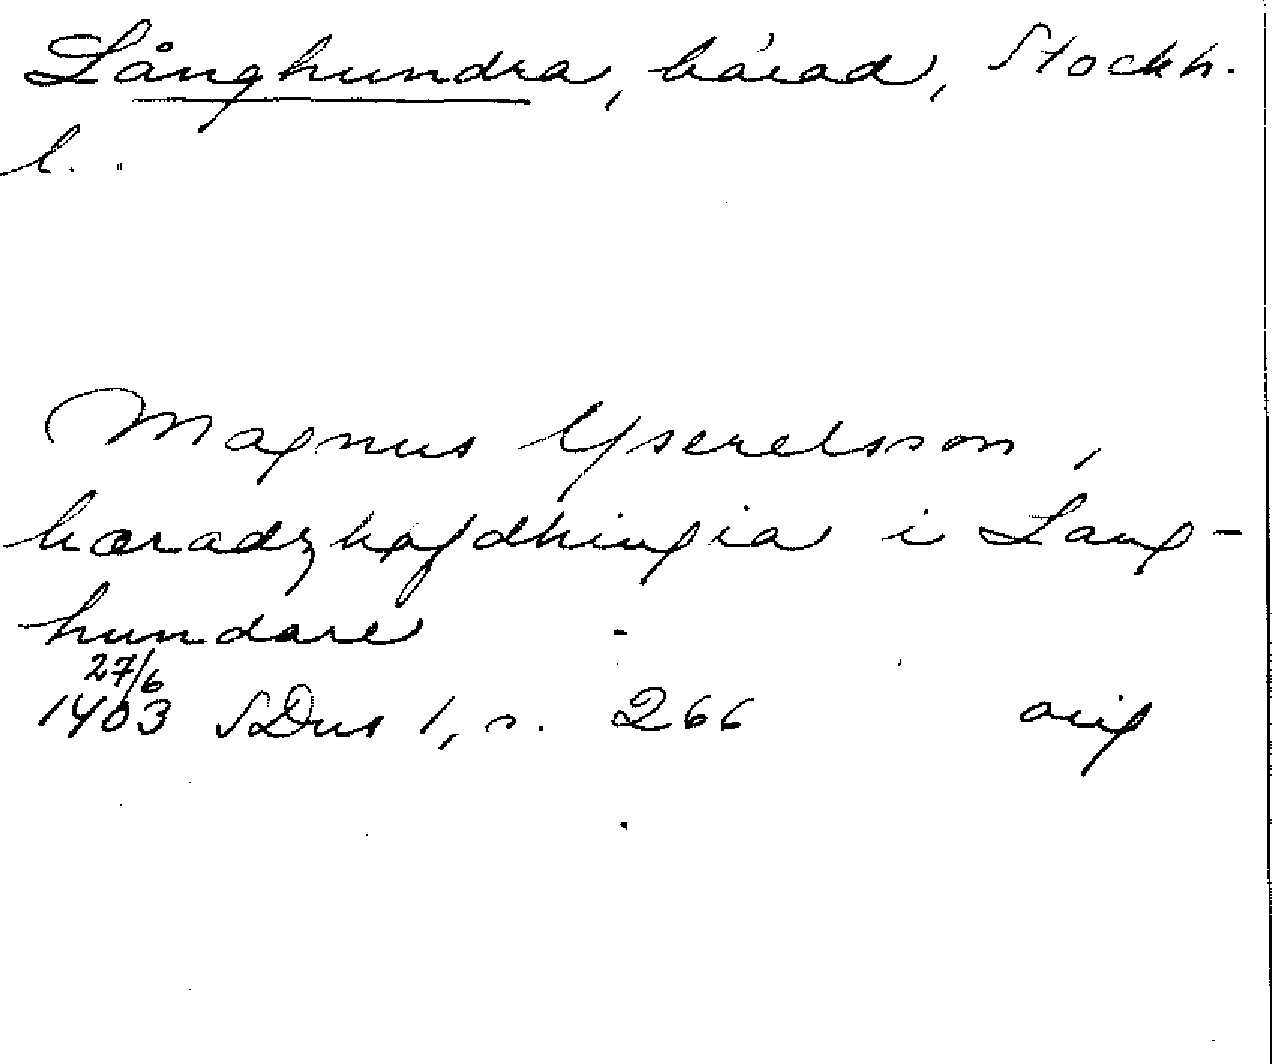 Långhundra, härad, Stockh.
l.
Magnus Yserelsson,
hæradzhøfdhingia i Lang-
hundare
27/6
1403 SDns 1, s. 266 orig